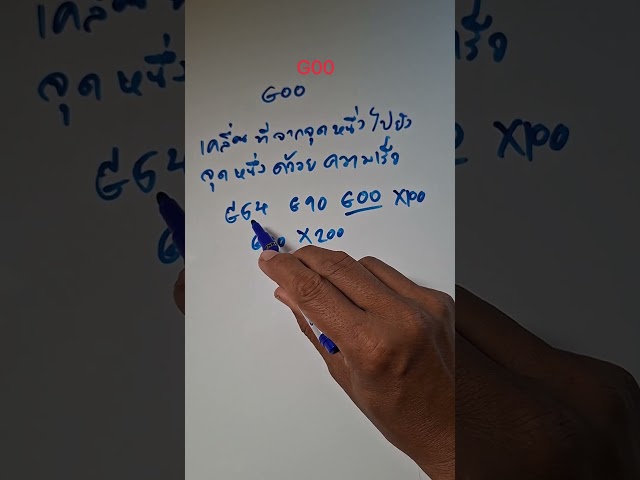 G00
G00
เคลื่อนที่จากจุดหนึ่งไปยัง
จุดหนึ่งด้วยความเร็ว
G54 G90 G00 X100
X200